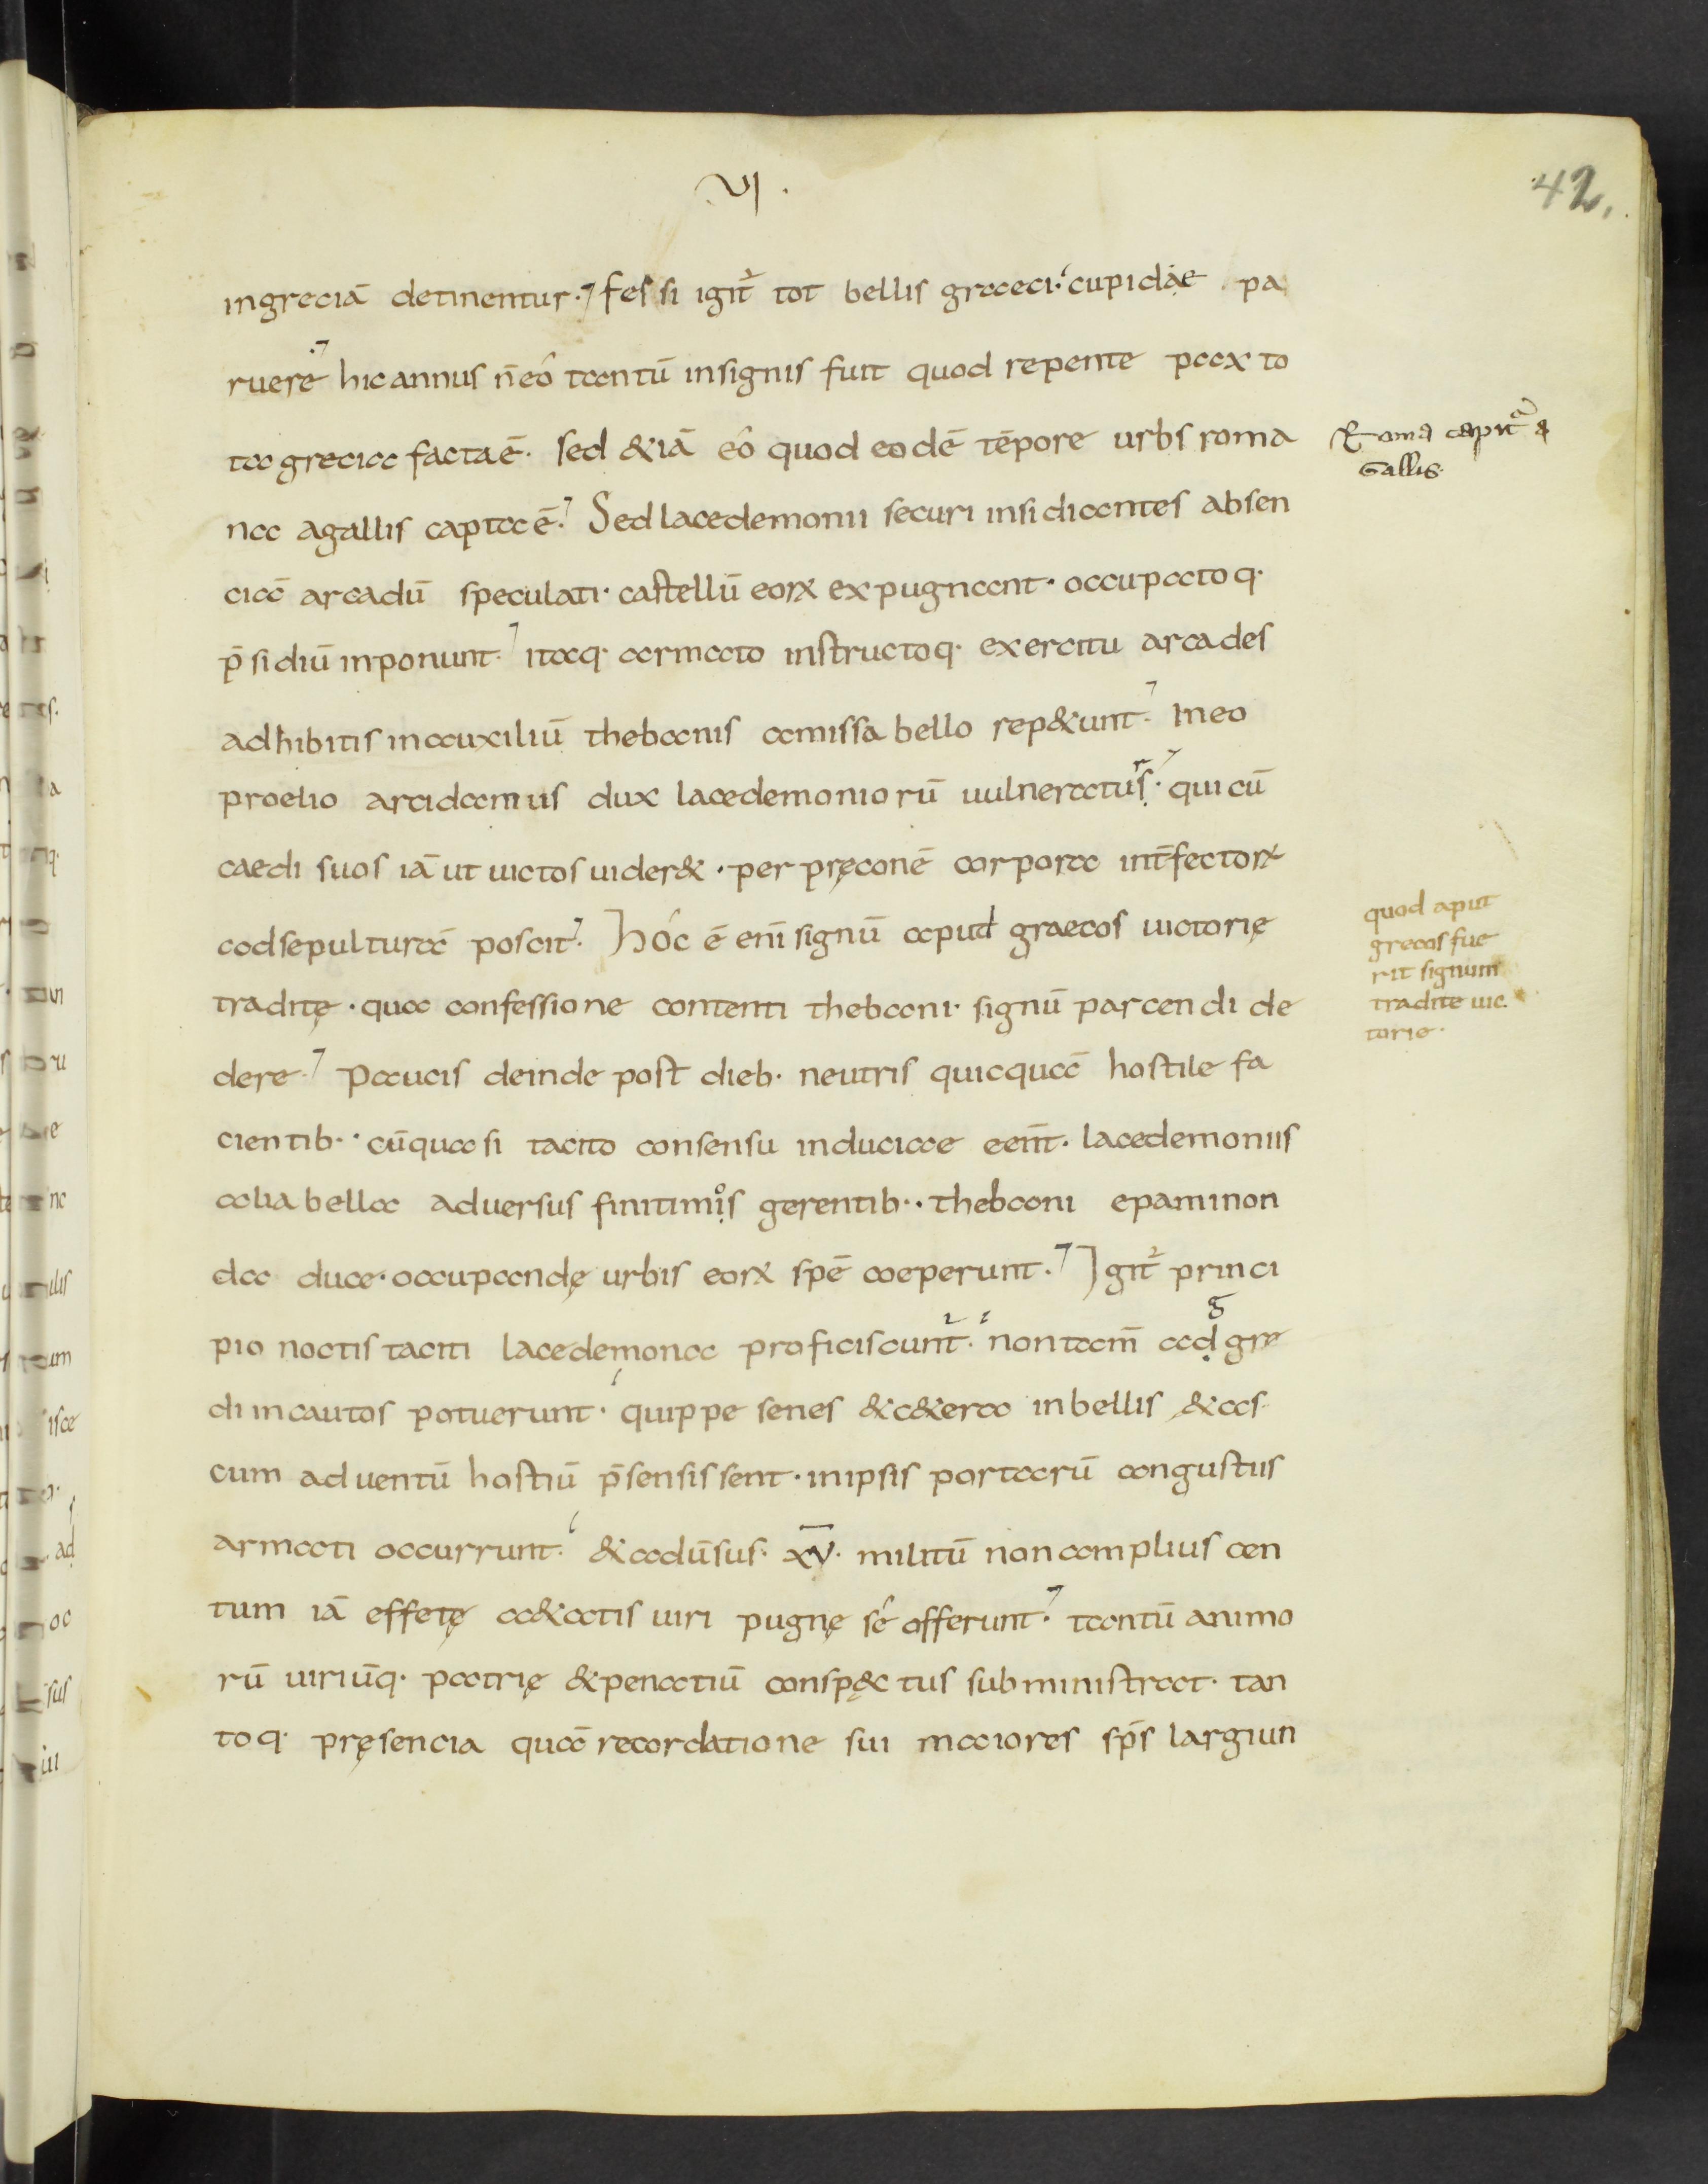 VI.
42.
ingreciā detinentur. fessi igit̄ tot bellis graeci. cupidae pa
ruere hicannus n̄eó tantū insignis fuit quod repente pax to
ta grecia factaē. sed &iā eó quod eodē tēpore urbs roma
Roma capit̄ a
Gallis.
na agallis capta ē. Sed lacedemonii securi insidiantes absen
ciā arcadū speculati. castellū eorꝝ expugnant. occupatoq.
p̄sidiū inponunt. itaq. armato instructoq. exercitu arcades
adhibitis inauxiliū thebanis amissa bello rep&unt. Ineo
proelio arcidamus dux lacedemoniorū uulneratus. quicū
r
caedi suos iā ut uictos uider&. per pręconē corpora int̄fectorꝝ
adsepulturā poscit. Hóc ē eni signū aput graecos uictorię
quod aput
grecos fue
rit signum
tradite uic.
torie.
traditę. qua confessione contenti thebani. signū parcendi de
dere. Paucis deinde post dieb. neutris quicquā hostile fa
cientib. cūquasi tacito consensu induciae een̄t. lacedemoniis
alia bella aduersus finitimis gerentib. thebani epaminon
o
da duce. occupandę urbis eorꝝ spē coeperunt. Igit̄ princi
pio noctis taciti lacedemona proficiscunt̄. nontam̄ adgre
g
di incautos potuerunt. quippe senes &c&era inbellis &as
cum aduentū hostiū p̄sensissent. inipsis portarū angustiis
armati occurrunt. &adūsus. x̅v̅. militū nonamplius cen
tum iā effetę a&atis uiri pugnę sé offerunt. tantū animo
rū uiriūq. patrię &penatiū consp&ctus subministrat. tan
toq. pręsencia quā recordatione sui maiores sp̄s largiun